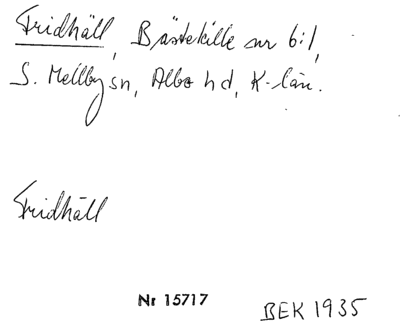 Fridhäll, Bästekille nr 6:1,
S. Mellby sn, Albo hd, K-län.
Fridhäll
Nr 15717
BEK 1935